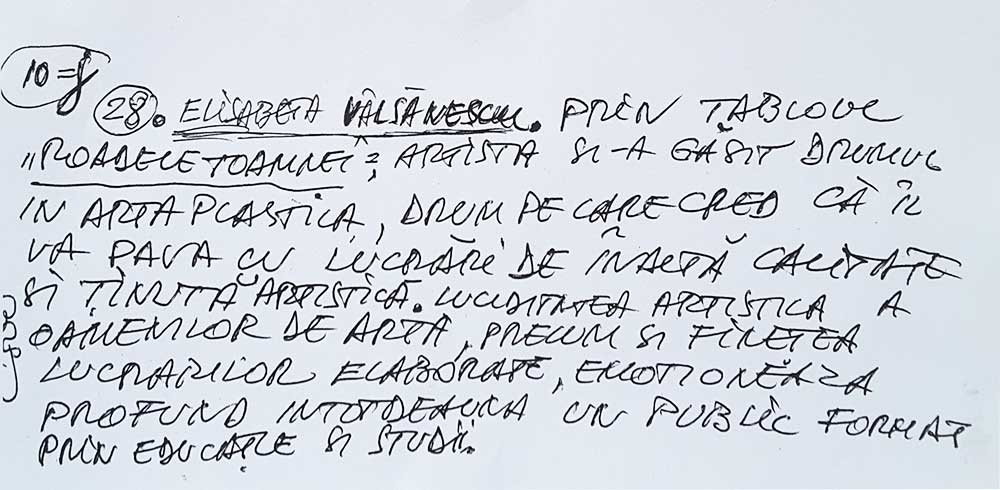 10=f
28. ELISABETA VÂLSĂNESCU. PRIN TABLOUL
„ROADELE TOAMNEI”, ARTISTA SI-A GĂSIT DRUMUL
IN ARTA PLASTICA, DRUM PE CARE CRED CĂ ÎL
VA PAVA CU LUCRĂRI DE ÎNALTĂ CALITATE
SI ȚINUTĂ ARTISTICĂ. LUCIDITATEA ARTISTICA A
OAMENILOR DE ARTA, PRECUM SI FINETEA
LUCRARILOR ELABORATE, EMOTIONEAZA
PROFUND INTOTDEAUNA UN PUBLIC FORMAT
PRIN EDUCAȚIE SI STUDII.